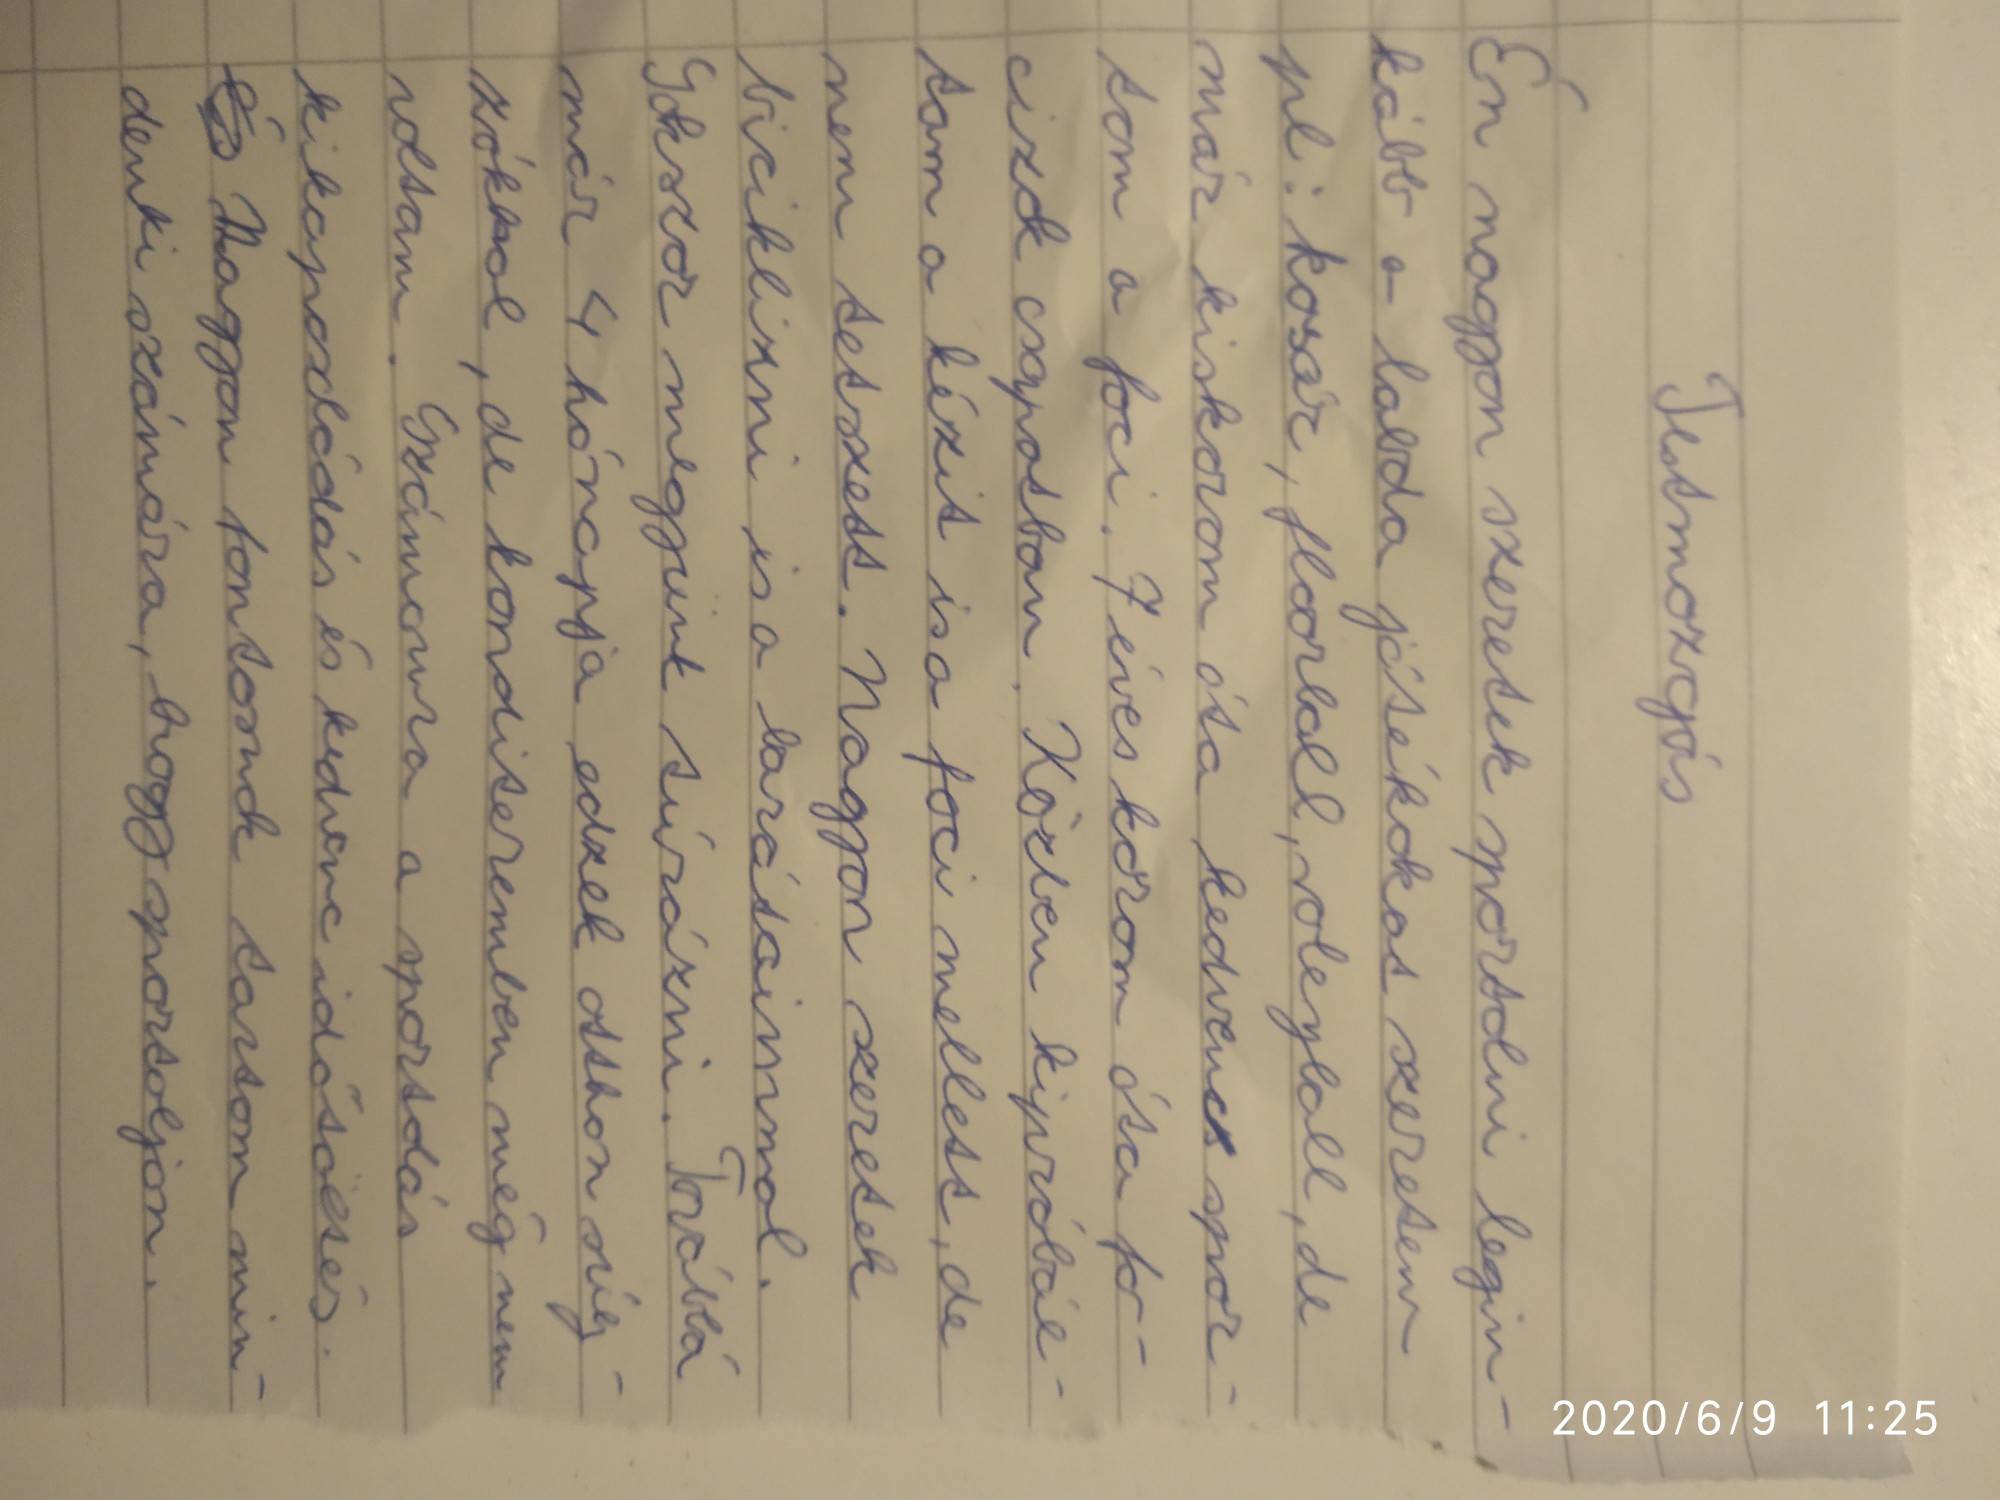 Testmozgás
Én nagyon szeretek sportolni legin-
kább a labda játékokat szeretem
pl: kosár, floorball, voleyball, de
már kiskorom óta kedvenc spor-
tom a foci. 7 éves korom óta fo-
cizok csapatban. Közben kipróbál-
tam a kézit is a foci mellett, de
nem tetszett. Nagyon szeretek
biciklizni is a barátaimmal.
Sokszor megyünk túrázni. Tovább
már 4 hónapja edzek otthon súly-
zókkal, de konditeremben még nem
voltam. Számomra a sportolás
kikapcsolódás és kedvenc időtöltés.
Nagyon fontosnak tartom min-
denki számára, hogy sportoljon.
2020/6/9 11:25